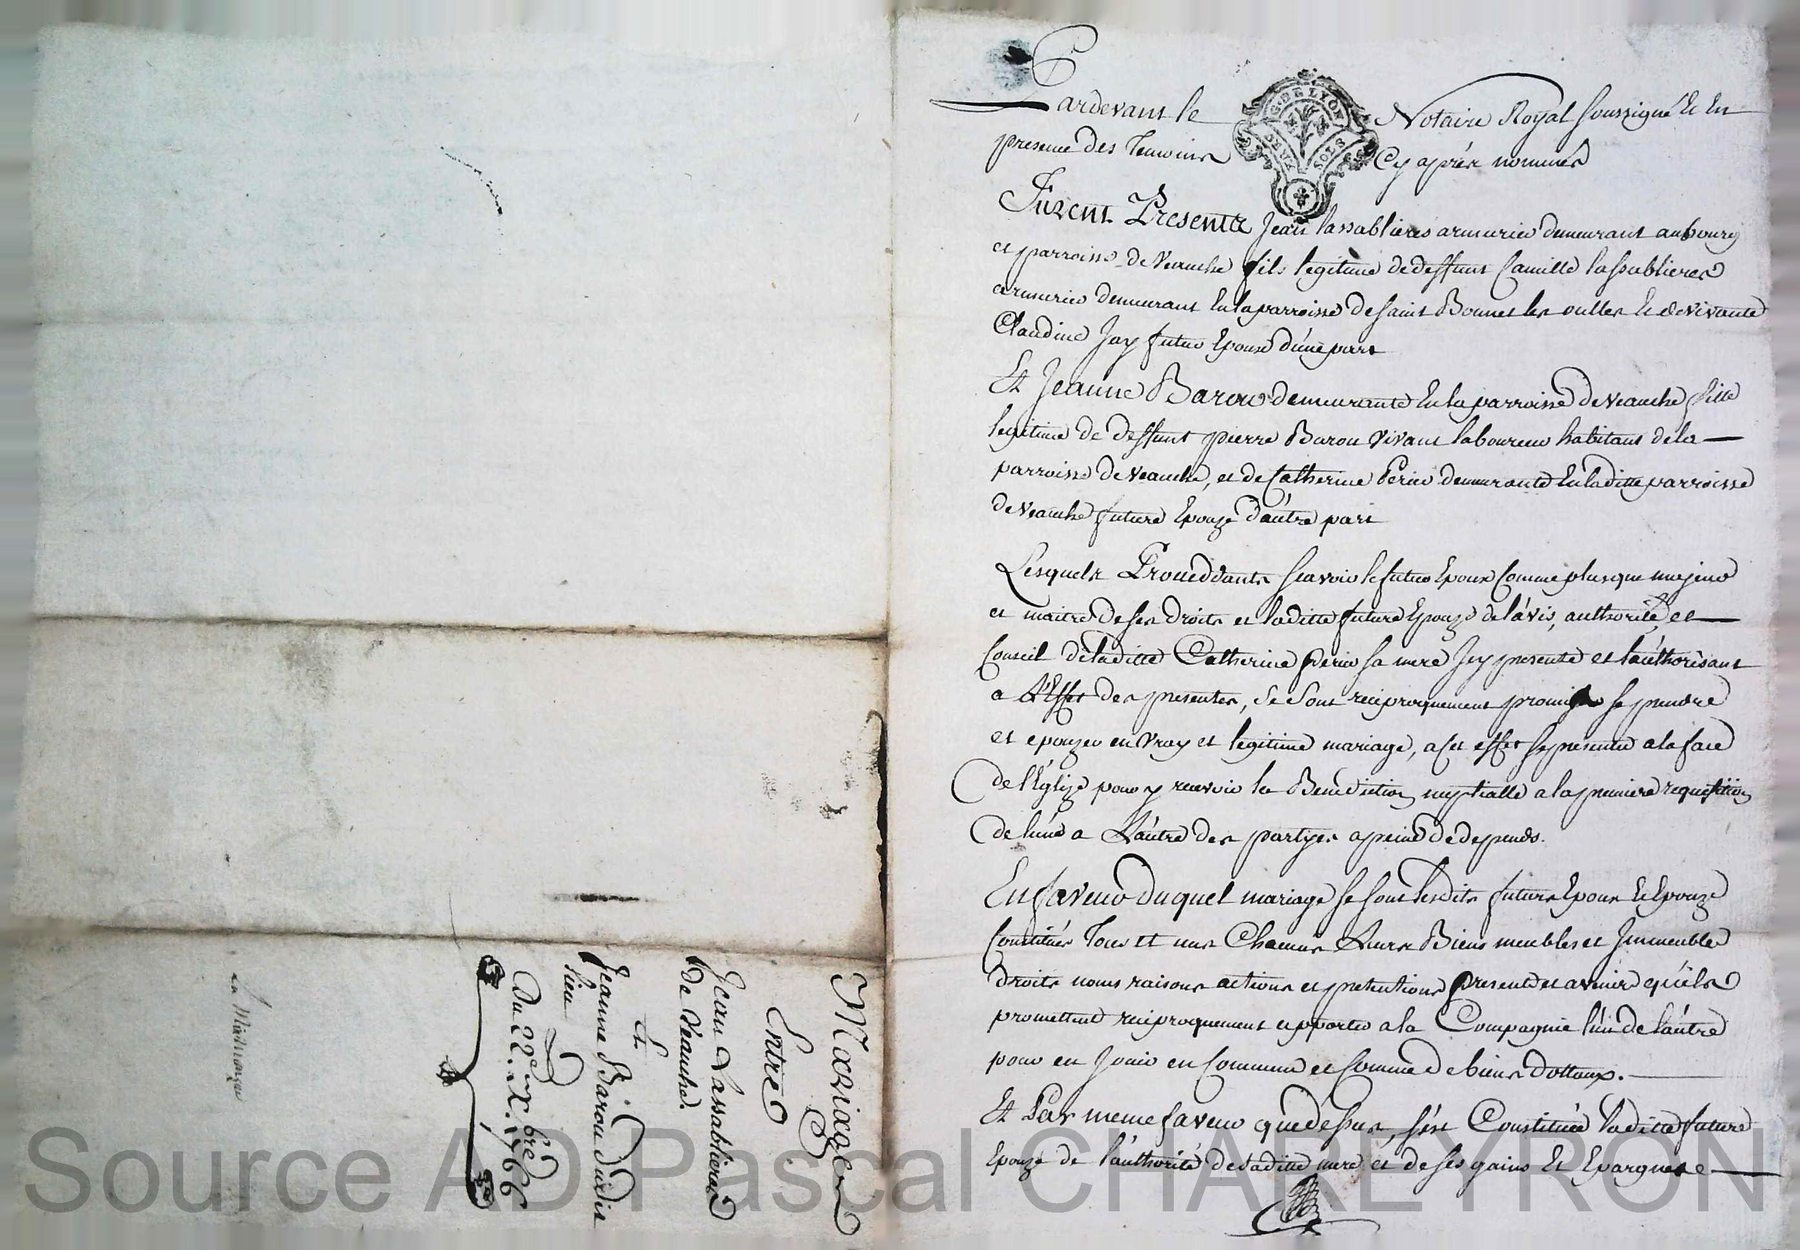 Mariage
Entre
Jean Lassablieres
de Veauche.
Et
Jeanne Barou dudit
lieu
Du 22e Xbre 1766
Pardevant le Notaire Royal soussigné Et En
presence des Temoins Cy aprés nommés
Furent Presents Jean lassablieres armurier demeurant au bourg
et parroisse de Veauche fils legitime de deffunt Camille lassablieres
armurier demeurant En la parroisse de saint Bonnet les oulles Et de vivante
Claudine Jay futur Epoux d'une part
Et Jeanne Barou demeurante En la parroisse de veauche fille
legitime de deffunt pierre Barou vivant laboureur habitant de la
parroisse de veauche, et de Catherine Perier demeurante En laditte parroisse
de veauche future Epouze d'autre part
Lesquels Proceddants sçavoir le futur Epoux Comme plus que majeur
et maitre de ses droits et laditte future Epouze de l'avis, authorité et
Conseil de laditte Catherine perier sa mere Icy presente et l'authorisant
a L'Effet des presentes, se sont reciproquement promis se prendre
et epouzer en vray et legitime mariage, a cet effet se presenter a la face
de l'Églize pour y recevoir la Benediction nuptialle a la premiere requisition
de l'une a L'autre des partyes a peine de depends.
En faveur duquel mariage se sont lesdits futurs Epoux Et Epouze
Constitués Tous et uns Chacuns Leurs Biens meubles et Immeubles
droits noms raisons actions et pretentions presents et avenir qu'ils
promettent reciproquement apporter a la Compagnie l'un de l'autre
pour en Jouir en Commun et Comme de biens dottaux.
Et Par meme faveur que dessus, s'est Constituée laditte future
Epouze de l'authorité de saditte mere et de ses gains Et Epargnes
G. DE LYON
DEUX SOLS
Source AD Pascal CHAREYRON